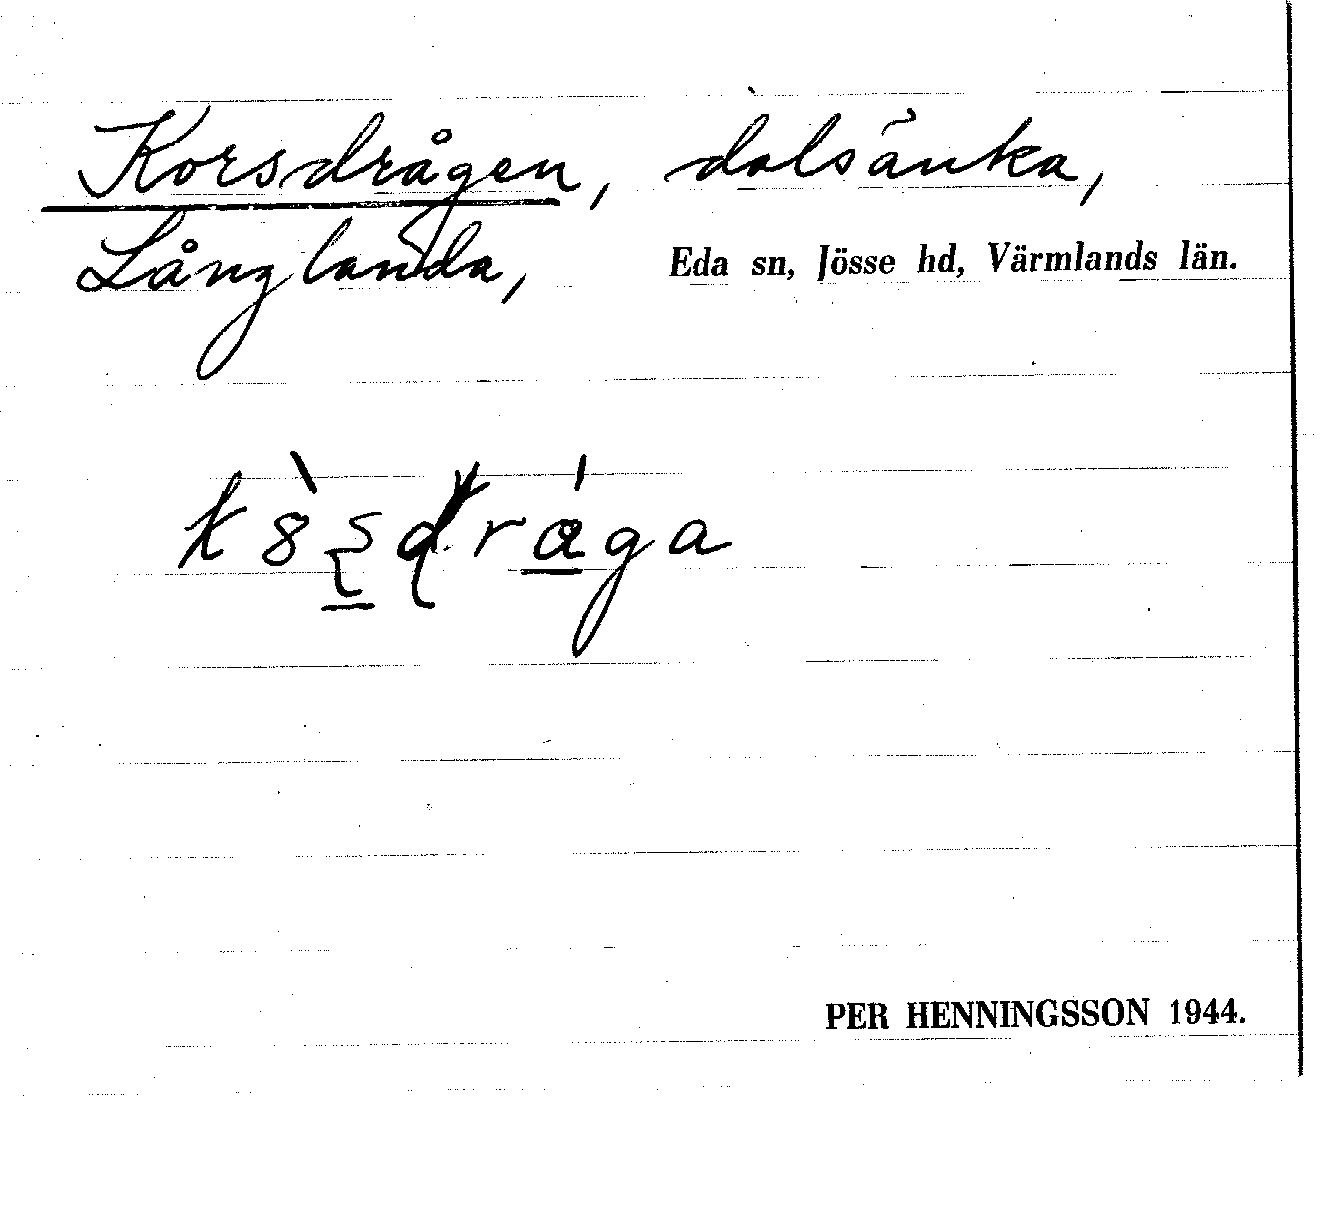 Korsdrågen, dalsänka,
Långlanda, Eda sn, Jösse hd, Värmlands län.
PER HENNINGSSON 1944.